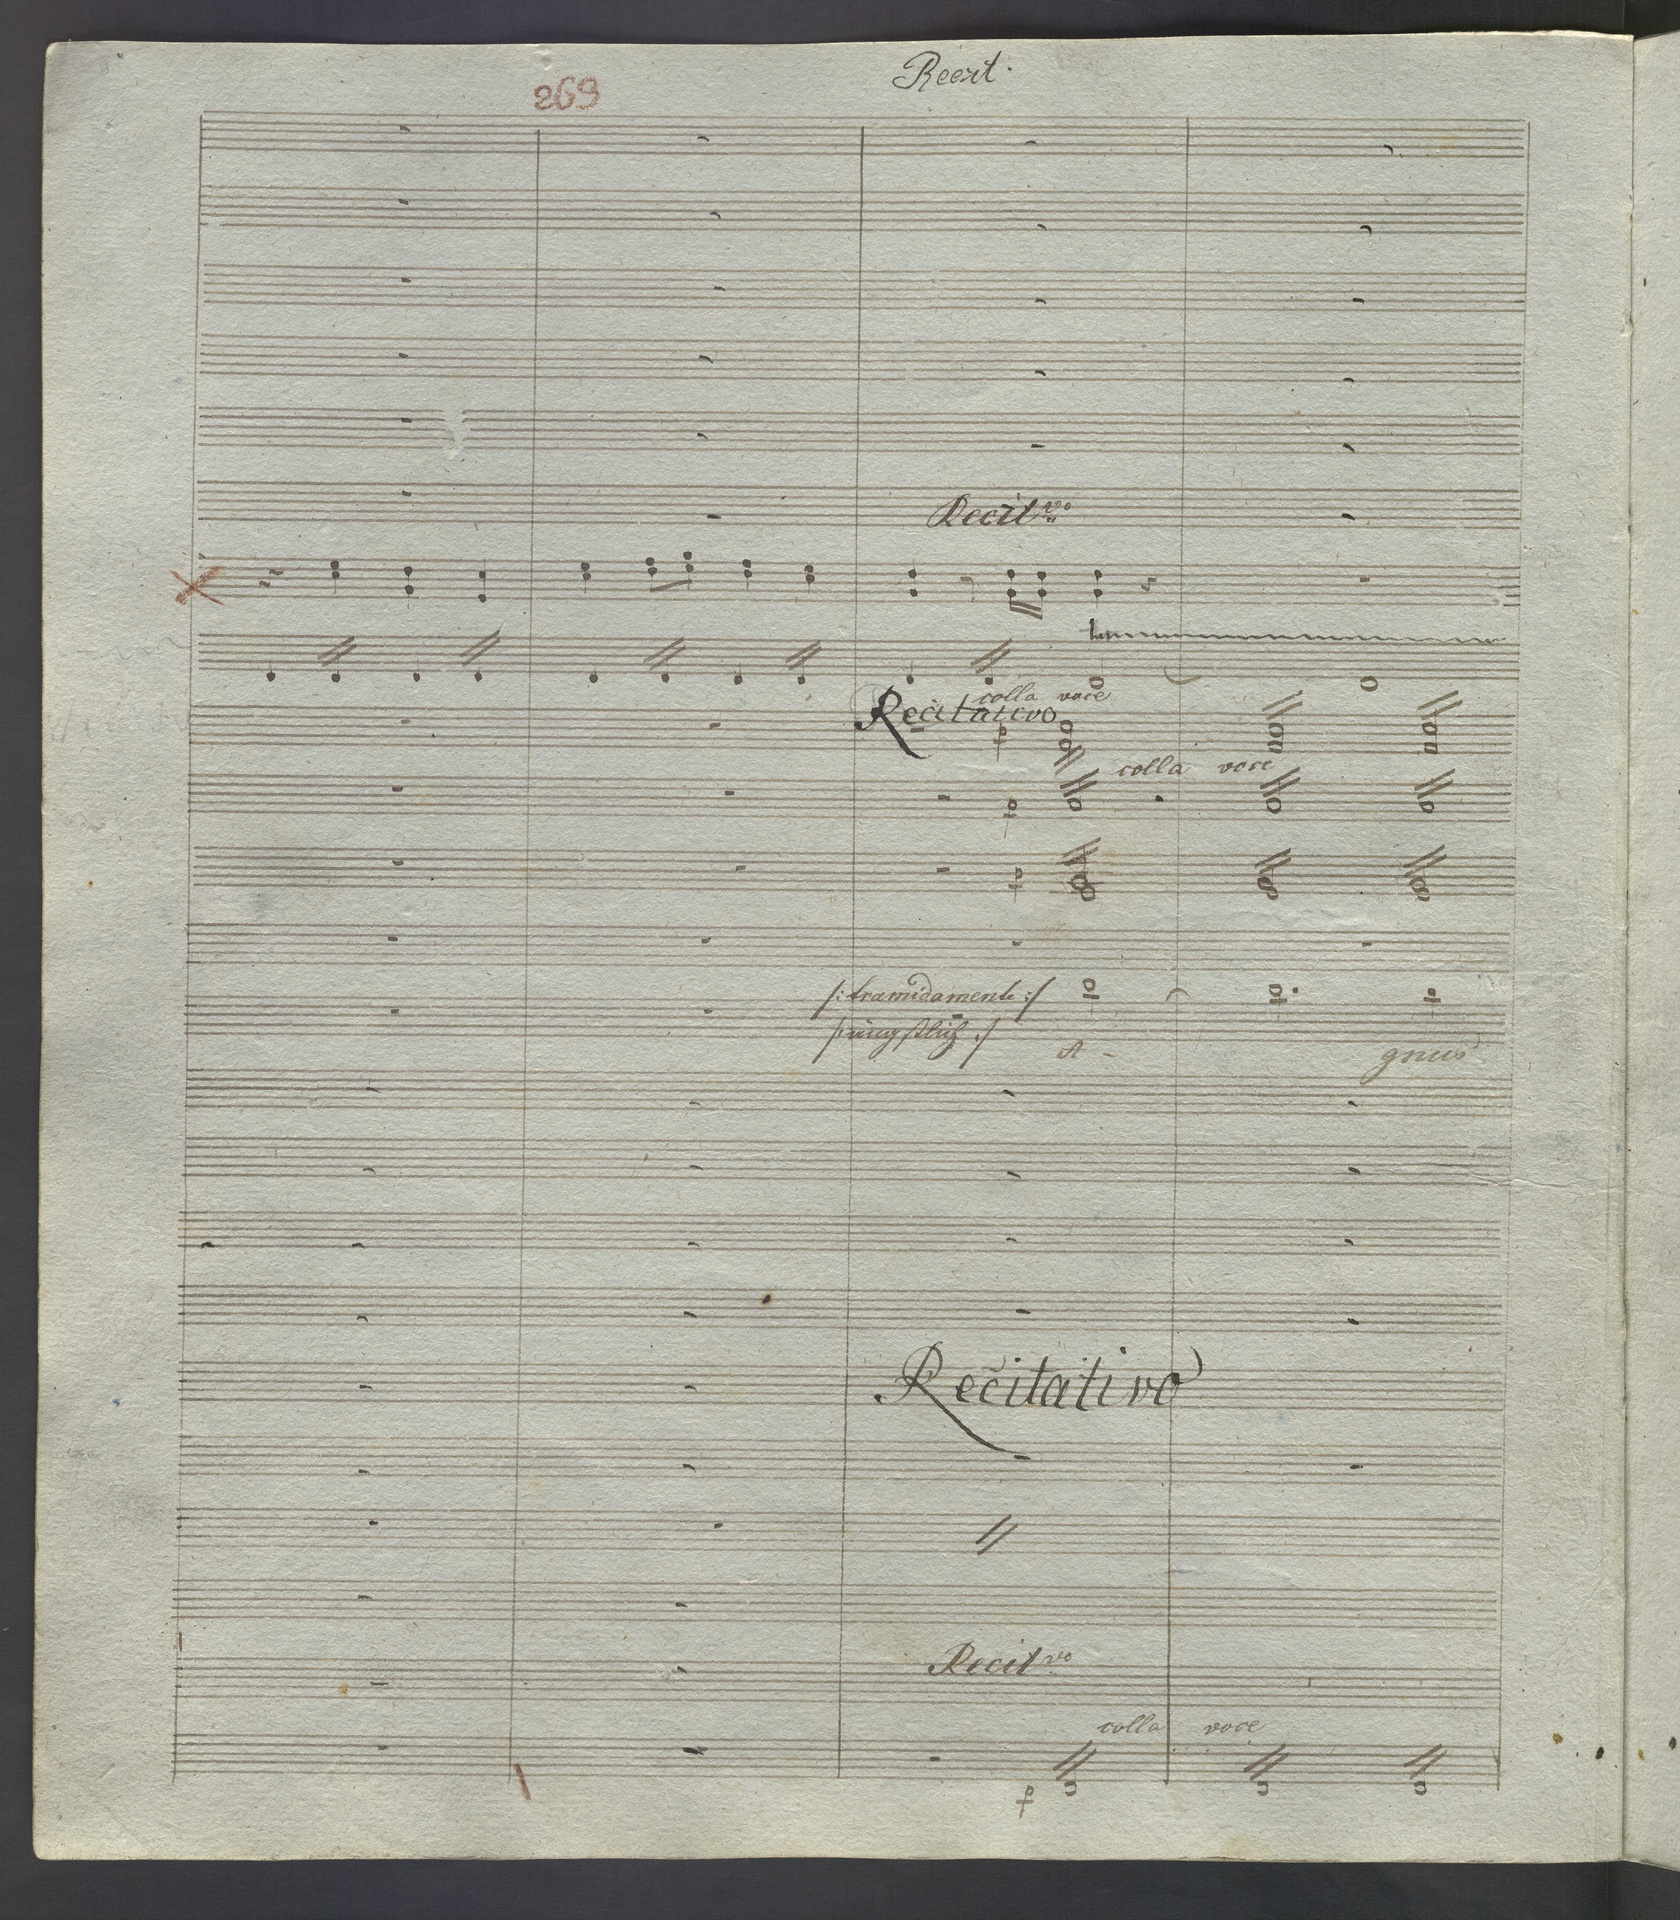 Recit.
269
Recit.vo
colla voce
Recitativo
p
colla voce
p
p
/: tramidamente :/
/: ängstlich :/
A - gnus
Recitativo
Recit.vo
colla voce
p